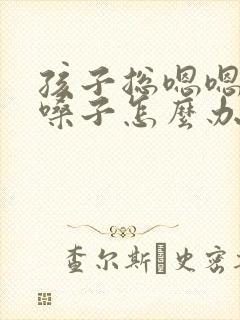 孩子总嗯嗯
嗓子怎麼办
查尔斯·史密